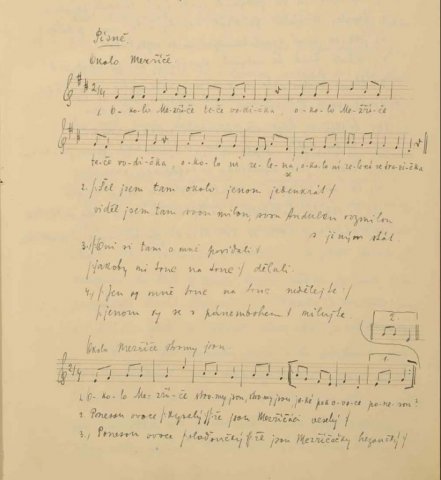 Písně.
Okolo Mezříče.
1. O-ko-lo Me-zří-če te-če vo-dič-ka, o-ko-lo Me-zří-če
te-če vo-dič-ka, o-ko-lo ní ze-le-ná, o-ko-lo ní zelená
2. /:Šel jsem tam okolo jenom jedenkrát:/
viděl jsem tam svou milou, svou Andulku rozmilou
s jiným stát
3. /:Oni si tam o mně povídali
jakoby mi tou na tou:/ dělali.
4. /:Jen vy mně tou na tou nedělejte:/
jenom vy se s pánembohem milujte.
2.
Okolo Mezříče stromy jsou.
1.
1. O-ko-lo Me-zří-če stro-my jsou, stro-my jsou, ja-ké pak o-vo-ce po-ne-sou?
2. Ponesou ovoce /:kyselý:/ že jsou Mezříčáci veselý
3. Ponesou ovoce že jsou Mezříčačky